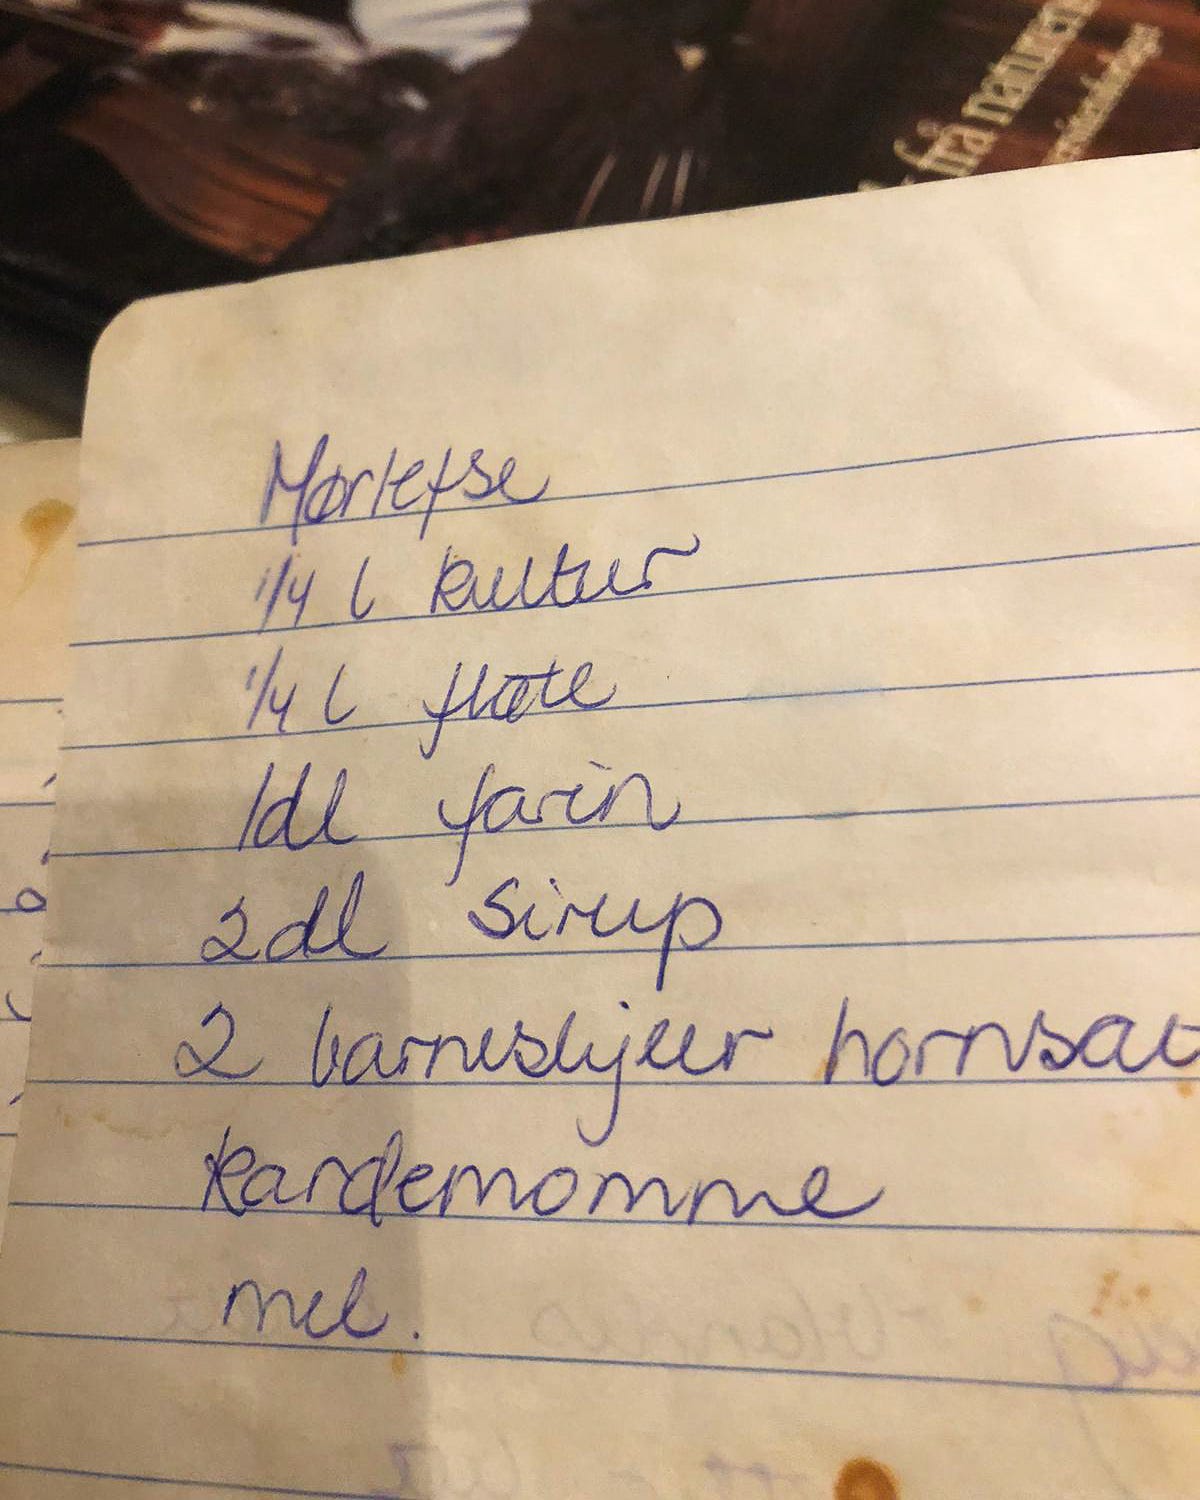 frå naturen
Mørlefse
1/4 l kultur
1/4 l fløte
1dl farin
2dl sirup
2 barneskjeer hornsat
kardemomme
mel.